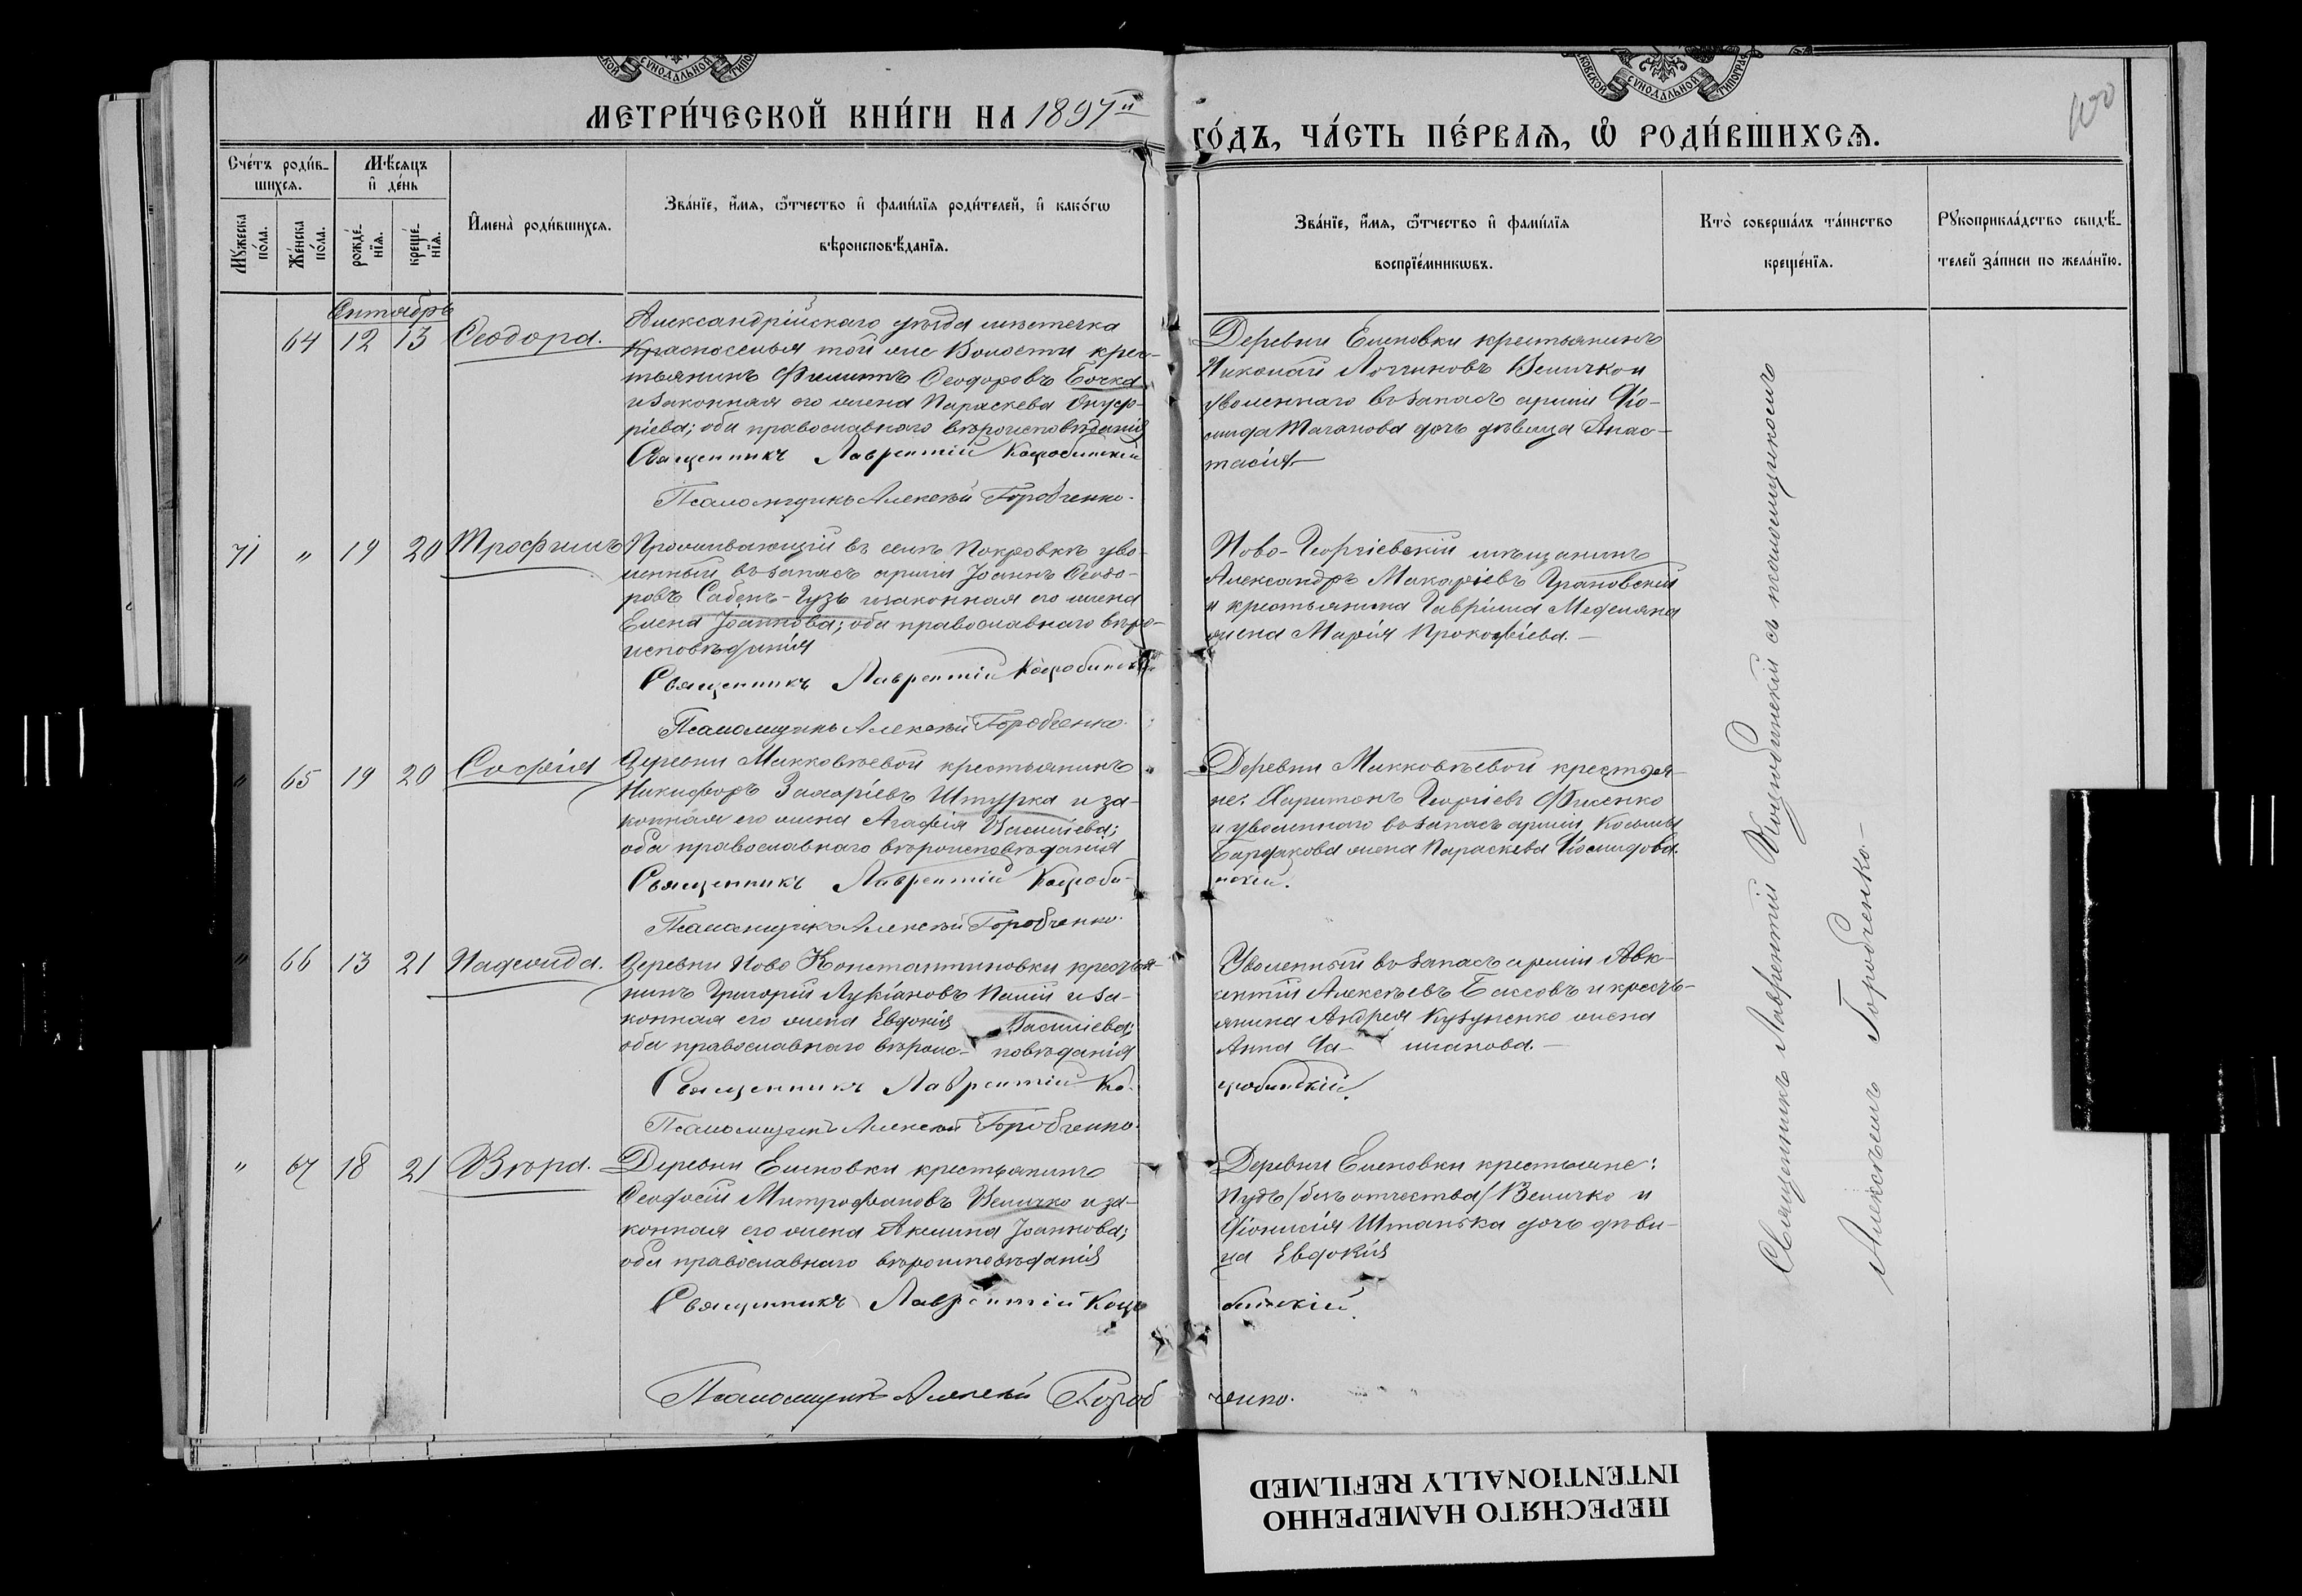 МЕТРИ́ЧЕСКОЙ КНИ́ГИ НА 1897й
ГО́ДЪ, ЧА́СТЬ ПЕ́РВАѦ, Ѡ҆ РОДИ́ВШИХСѦ.
100
Сче́тъ роди́в-
шихсѧ.
Мѣ́сѧцъ
и҆ де́нь
Мꙋ́жеска по́ла.
Же́нска по́ла.
рожде́-
нїѧ.
креще́-
нїѧ.
И҆мена̀ роди́вшихсѧ.
Зва́нїе, и҆́мѧ, ѻ҆́тчество и҆ фами́лїѧ роди́телей, и҆ како́гѡ
вѣроисповѣ́данїѧ.
Зва́нїе, и҆́мѧ, ѻ҆́тчество и҆ фами́лїѧ
воспрїе́мникѡвъ.
Кто̀ соверша́лъ та́инство
креще́нїѧ.
Рꙋкоприкла́дство свидѣ́-
телей за́писи по жела́нїю.
Октябрь
64 12 13 Ѳеодора.
Александрійскаго уѣзда мѣстечка
Красноселья той же Волости крес-
тьянинъ Филиппъ Ѳеодоровъ Бочка
и законная его жена Параскева Онуф-
ріева; оба православнаго вѣроисповѣданія
Священникъ Лаврентій Коцюбинскій
Псаломщикъ Алексѣй Горобченко.
Деревни Еленовки крестьянинъ
Николай Логгиновъ Величко и
уволеннаго въ запасъ арміи Діо-
мида Таганова дочь дѣвица Анас-
тасія
71 " 19 20 Трофимъ
Проживающій въ селѣ Покровкѣ уво-
ленный въ запасъ арміи Іоаннъ Ѳеодо-
ровъ Сабенъ-Гузъ и законная его жена
Елена Іоаннова; оба православнаго вѣро-
исповѣданія
Священникъ Лаврентій Коцюбинскій
Псаломщикъ Алексѣй Горобченко.
Ново-Георгіевскій мѣщанинъ
Александръ Макаріевъ Грановскій
и крестьянина Гавріила
жена Марія Прокофіева.
" 65 19 20 Софія
Деревни Машковцевой крестьянинъ
Никифоръ Захаріевъ Штурка и за-
конная его жена Агафія Василіева;
оба православнаго вѣроисповѣданія
Священникъ Лаврентій Коцюби-
нскій.
Псаломщикъ Алексѣй Горобченко.
Деревни крестья-
не: Харитонъ Георгіевъ Фисенко
и уволеннаго въ запасъ арміи Косьмы
Бардакова жена Параскева Діомидова.
" 66 13 21 Надежда.
Деревни Ново Константиновки крестья-
нинъ Григорій Лукіановъ Палій и за-
конная его жена Евдокія Василіева;
оба православнаго вѣроис- повѣданія
Священникъ Лаврентій Ко-
цюбинскій.
Псаломщикъ Алексѣй Горобченко.
Уволенный въ запасъ арміи Авк-
сентій Алексѣевъ Бассовъ и кресть-
янина Андрея Кузуненко жена
Анна
" 67 18 21 Вѣра.
Деревни Еленовки крестьянинъ
Ѳеодосій Митрофановъ Величко и за-
конная его жена Акилина Іоаннова;
оба православнаго вѣроисповѣданія
Священникъ Лаврентій Коцю
бинскій.
Псаломщикъ Алексѣй Гороб
ченко.
Деревни Еленовки крестьяне:
Пудъ /безъ отчества/ Величко и
Діонисія Штанька дочь дѣви-
ца Евдокія
Священникъ Лаврентій Коцюбинскій съ псаломщикомъ
Алексѣемъ Горобченко.
ПЕРЕСНЯТО НАМЕРЕННО
INTENTIONALLY REFILMED